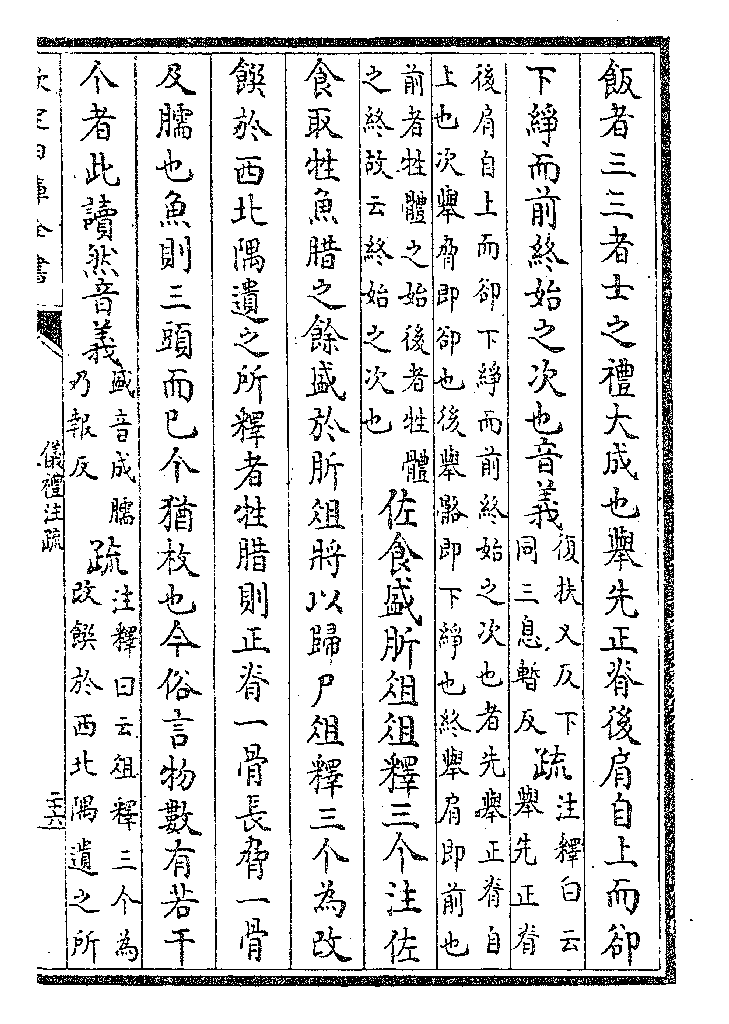 飯者三三者士之禮大成也舉先正脊後肩自上而卻
下綪而前終始之次也音義復扶又反下同三息暫反疏注釋曰云舉先正脊
後肩自上而卻下綪而前終始之次也者先舉正脊自
上也次舉脅即卻也後舉骼即下綪也終舉肩即前也
前者牲體之始後者牲體
之終故云終始之次也
佐食盛肵俎俎釋三个注佐
食取牲魚腊之餘盛於肵俎將以歸尸俎釋三个為改
饌於西北隅遺之所釋者牲腊則正脊一骨長脅一骨
及臑也魚則三頭而已个猶枚也今俗言物數有若干
个者此讀然音義盛音成臑乃報反疏注釋曰云俎釋三个為
改饌於西北隅遺之所
欽定四庫全書
儀禮注疏
二十六